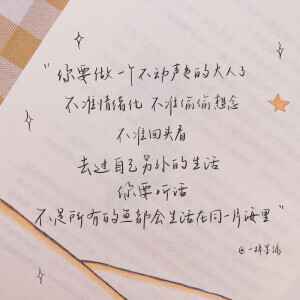 “你要做一个不动声色的大人了
不准情绪化 不准偷偷想念
不准回头看
去过自己另外的生活
你要听话
不是所有的鱼都会生活在同一片海里”